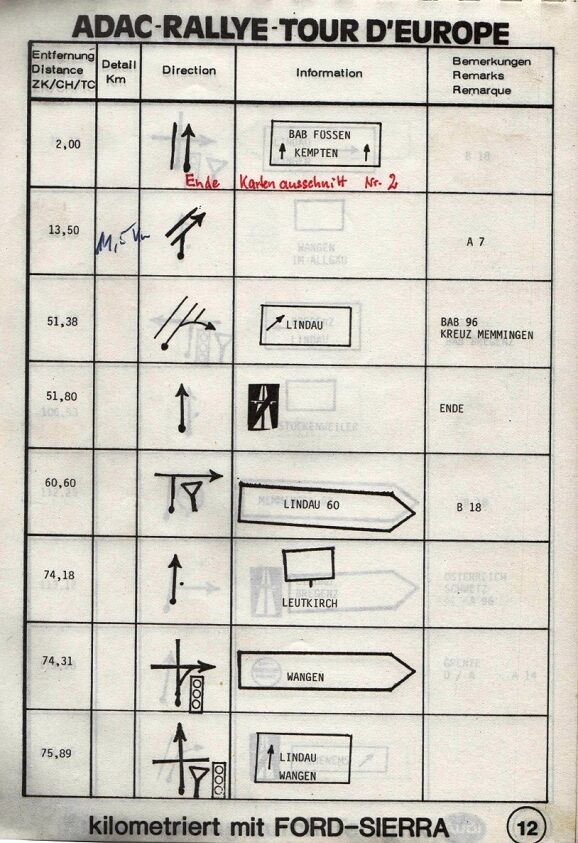 ADAC-RALLYE-TOUR D'EUROPE
Entfernung
Distance
ZK/CH/TC
Detail
Km
Direction
Information
Bemerkungen
Remarks
Remarque
2,00
BAB FÜSSEN
KEMPTEN
B 18
Ende Kartenausschnitt Nr. 2
13,50
WANGEN
IM ALLGÄU
A 7
51,38
LINDAU
BAB 96
KREUZ MEMMINGEN
51,80
ENDE
STOCKENWEILER
60,60
LINDAU 60
B 18
74,18
LEUTKIRCH
BREGENZ
ÖSTERREICH
SCHWEIZ
74,31
WANGEN
GRENZE
D / A A 14
75,89
LINDAU
WANGEN
kilometriert mit FORD-SIERRA
12